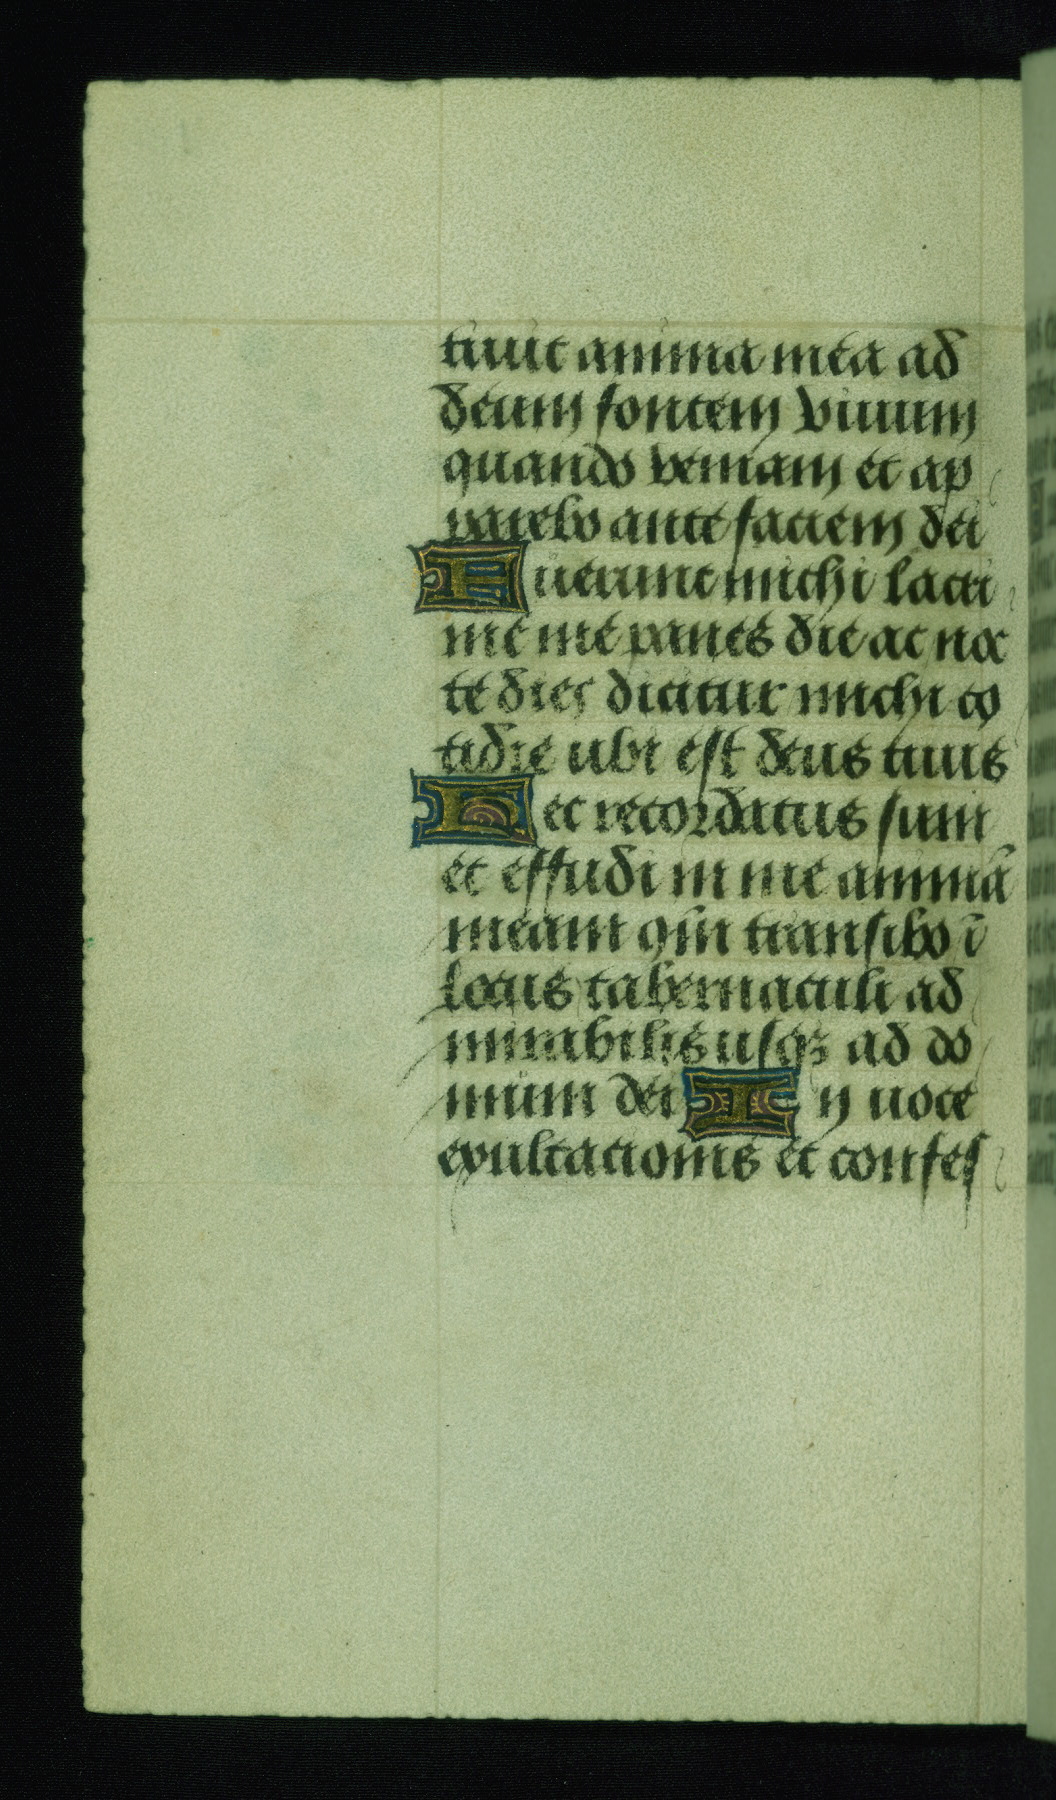 tiuit anima mea ad
deum fontem viuum
quando veniam et ap
parebo ante faciem dei
Fuerunt michi lacri
me me panes die ac noc
te dies dicitur michi co
tidie ubi est deus tuus
Hec recordatus sum
et effudi in me animā
meam qm̄ transibo ī
locus tabernaculi ad
mirabilis usqꝫ ad do
mum dei In uoce
exultacionis et confes